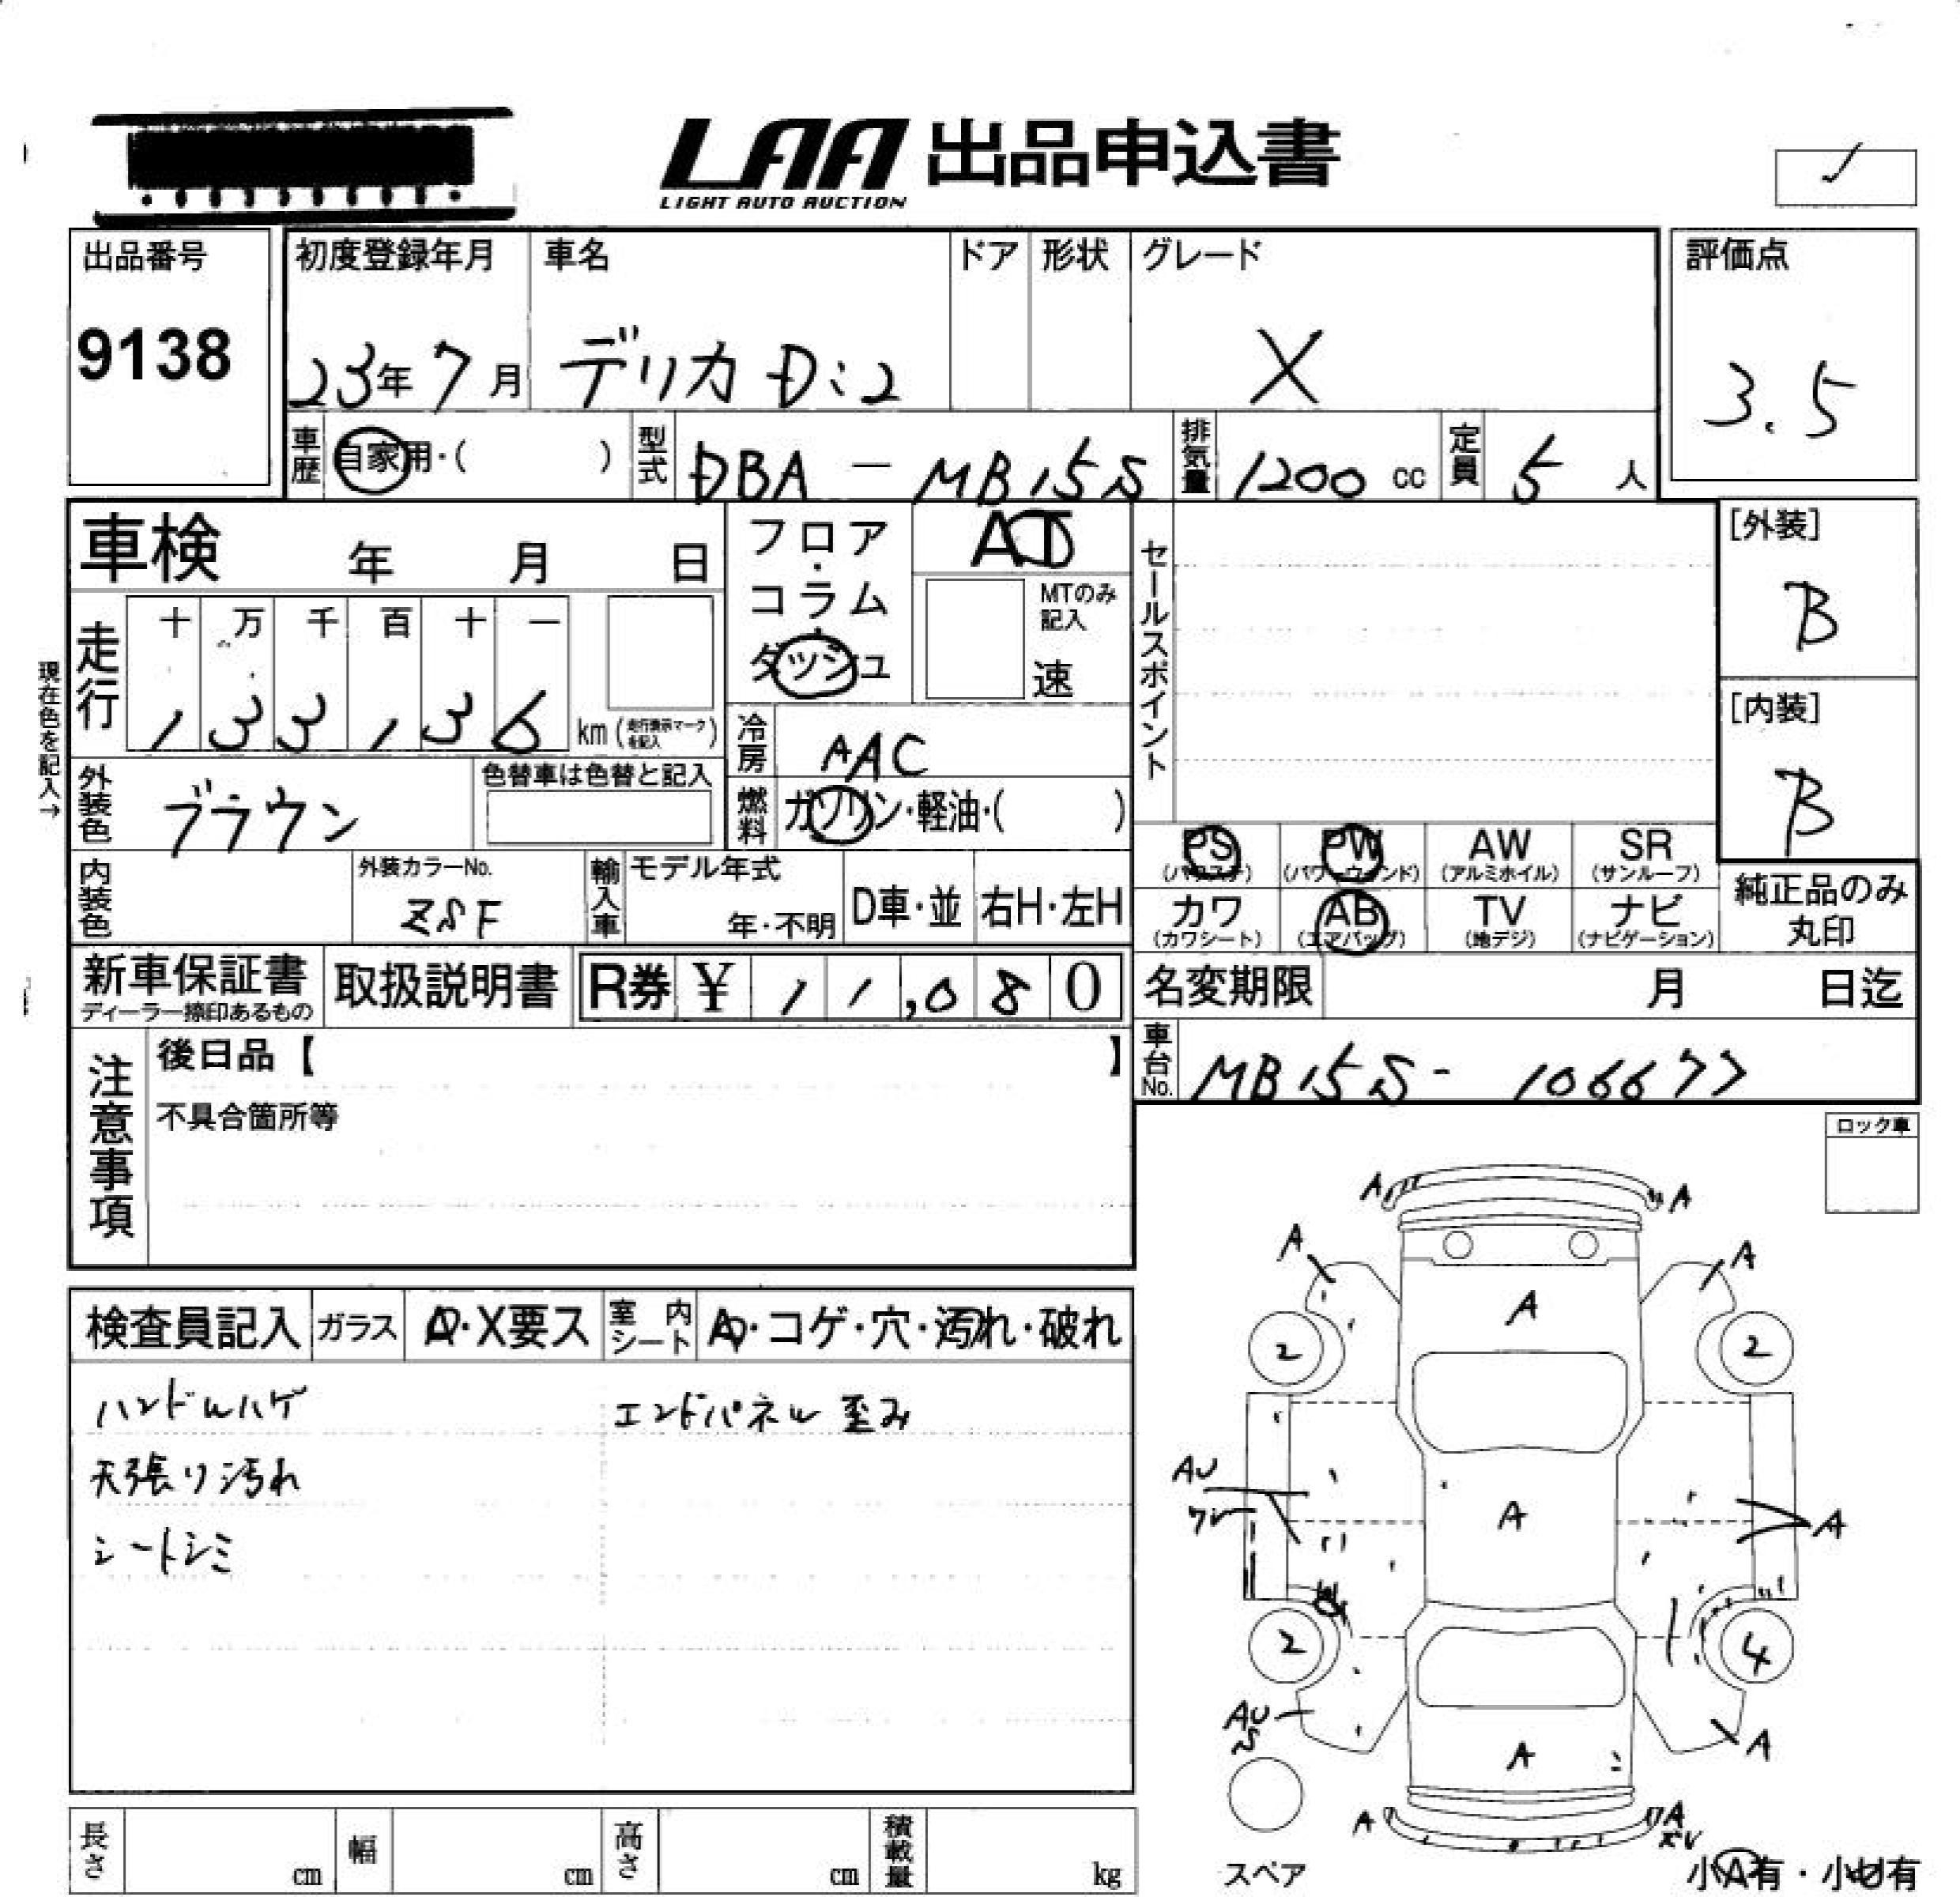 LAA 出品申込書
LIGHT AUTO AUCTION
出品番号
9138
初度登録年月
23年7月
車名
デリカD:2
ドア
形状
グレード
X
評価点
3.5
車歴
自家用・( )
型式
DBA-MB15S
排気量
1200 cc
定員
5 人
車検 年 月 日
フロア・コラム・ダッシュ
AT
MTのみ記入
速
セールスポイント
[外装]
B
[内装]
B
現在色を記入→
走行
十 万 千 百 十 一
1 3 3 1 3 6 km (走行表示マークを記入)
冷房
AAC
外装色
ブラウン
色替車は色替と記入
燃料
ガソリン・軽油・( )
PS (パワステ)
PW (パワーウインド)
AW (アルミホイル)
SR (サンルーフ)
カワ (カワシート)
AB (エアバッグ)
TV (地デジ)
ナビ (ナビゲーション)
純正品のみ丸印
内装色
外装カラーNo.
ZSF
輸入車
モデル年式
年・不明
D車・並
右H・左H
新車保証書
ディーラー捺印あるもの
取扱説明書
R券 ¥ 11,080
名変期限 月 日迄
車台No.
MB15S-106677
注意事項
後日品【 】
不具合箇所等
ロック車
検査員記入
ガラス
A・X要ス
室内シート
A・コゲ・穴・汚れ・破れ
ハンドルハゲ
エンドパネル歪み
天張り汚れ
シートシミ
A A
A A
A
2 2
AU
ワレ
A
A
2 4
AU
S
A
A
A A
スペア
小A有・小U有
長さ cm
幅 cm
高さ cm
積載量 kg